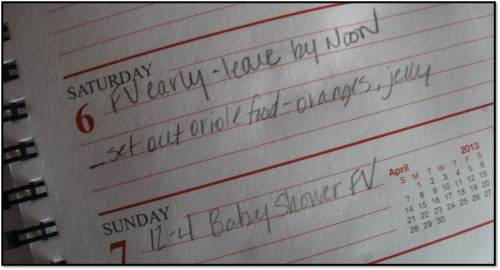 SATURDAY
6 FV early - leave by Noon
- set out oriole food - oranges, jelly
SUNDAY
7 12-4 Baby Shower FV
April 2013
S M T W T F S
1 2 3 4 5 6
7 8 9 10 11 12 13
14 15 16 17 18 19 20
21 22 23 24 25 26 27
28 29 30